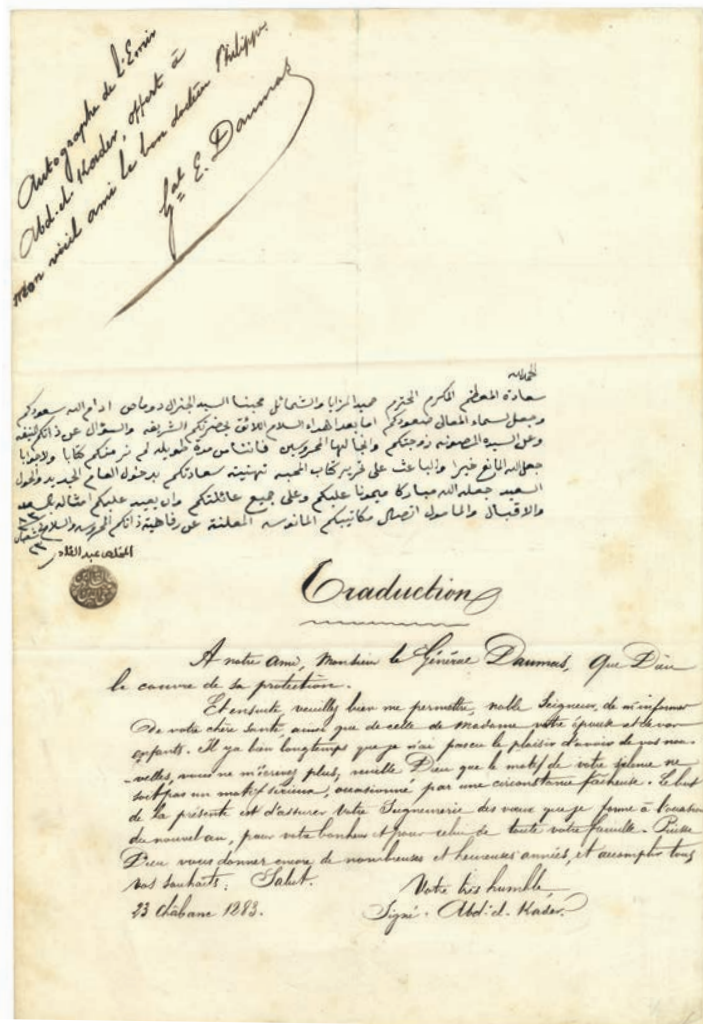 Autographe de l'Emir
Abd-el-Kader, offert à
mon vieil ami le bon docteur Philippe.
Gal E. Daumas
الحمد لله
سعادة المعظم المكرم المحترم حميد المزايا والشمائل محبنا السيد الجنرال دوماس ادام الله سعودكم
وجعل لسماء المعالى صعودكم اما بعد اهداء السلام اللائق بحضرتكم الشريفه والسؤال عن ذاتكم
وعن السيده المصونه زوجتكم وانجالها المحروسين فاننا من مدة طويله لم نر منكم كتابا ولا جوابا
جعل الله المانع خيرا والباعث على تحرير كتاب المحبه تهنيئة سعادتكم بدخول العام الجديد والحول
السعيد جعله الله مباركا ميمونا عليكم وعلى جميع عائلتكم وان يعيد عليكم امثاله
والاقبال والمامول اتصال مكاتيبكم المانوسه المعلنة عن رفاهية ذاتكم المحروسه والسلام
٢٣ شعبان
المخلص عبد القادر
Traduction
A notre ami, Monsieur le Général Daumas, que Dieu
le couvre de sa protection.
Et ensuite veuillez bien me permettre, noble Seigneur, de m'informer
de votre chère santé, ainsi que de celle de Madame votre épouse et de vos
enfants. Il y a bien longtemps que je n'ai pas eu le plaisir d'avoir de vos nou-
-velles, vous ne m'écrivez plus, veuille Dieu que le motif de votre silence ne
soit pas un motif sérieux, occasionné par une circonstance fâcheuse. Le but
de la présente est d'assurer Votre Seigneurie des vœux que je forme à l'occasion
du nouvel an, pour votre bonheur et pour celui de toute votre famille. Puisse
Dieu vous donner encore de nombreuses et heureuses années, et accomplir tous
vos souhaits. Salut.
Votre très humble,
23 Châbane 1283.
Signé. Abd-el-Kader.